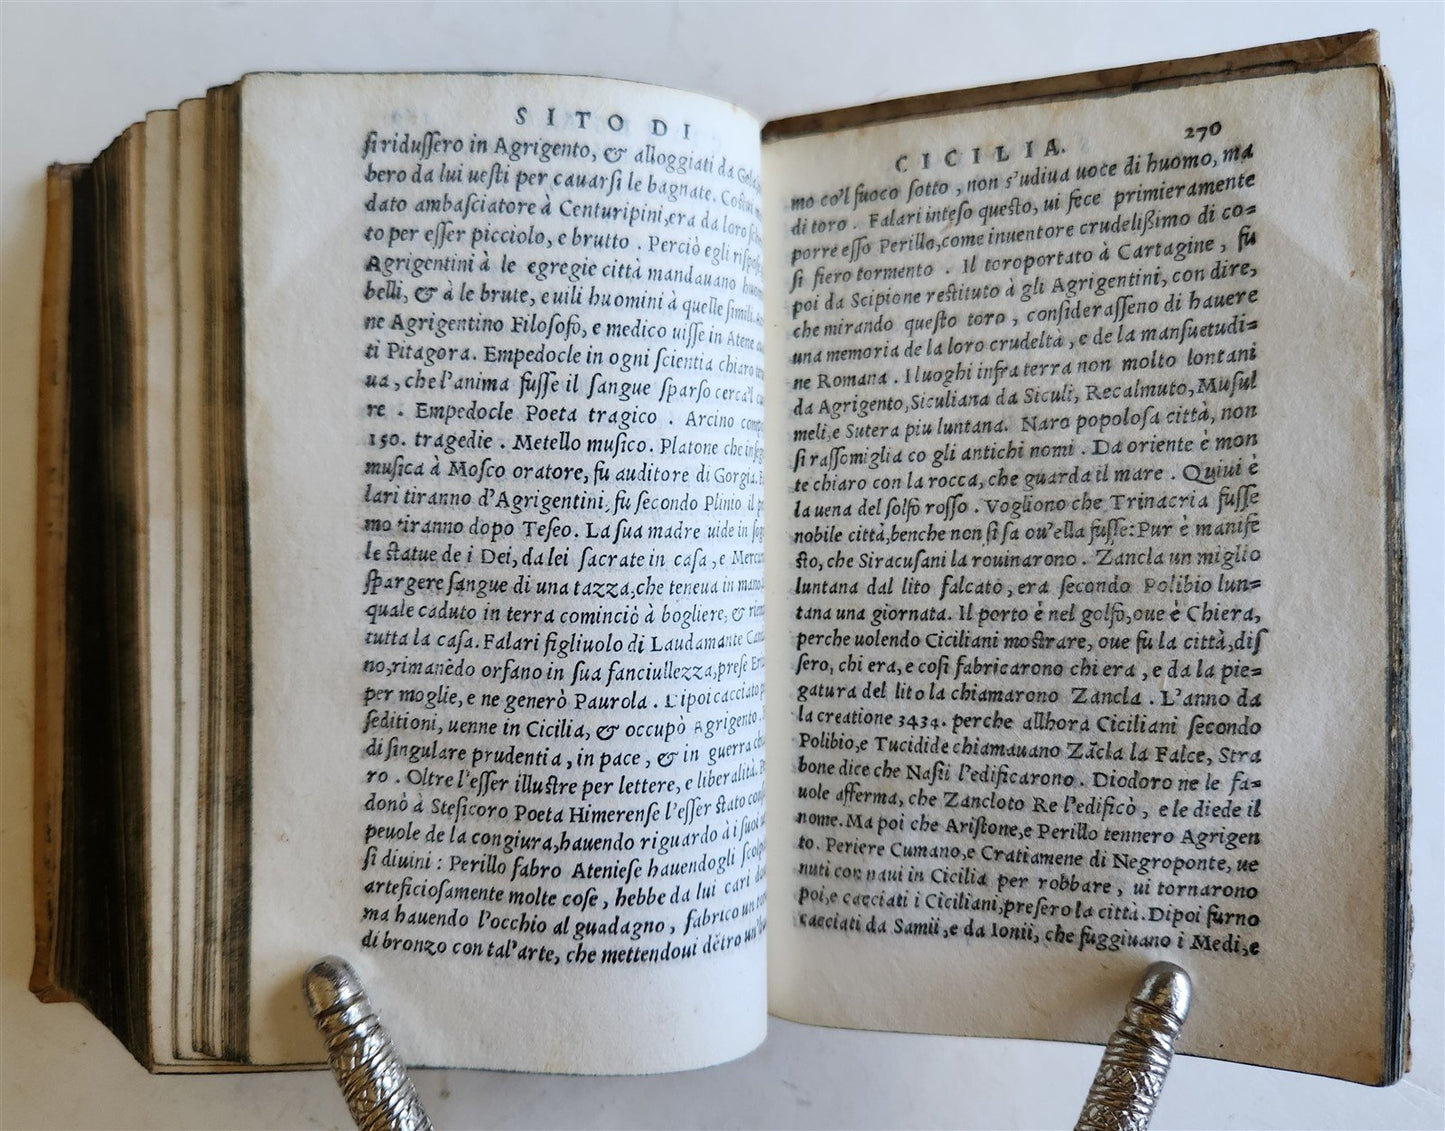 SITO DI
ſi riduſſero in Agrigento, & alloggiati da
bero da lui ueſti per cauarſi le bagnate.
dato ambaſciatore à Centuripini, era da loro
to per eſſer picciolo, e brutto. Perciò egli
Agrigentini à le egregie città mandauano
belli, & à le brute, e uili huomini à quelle ſimili.
ne Agrigentino Filoſofo, e medico uiſſe in Atene
ti Pitagora. Empedocle in ogni ſcientia chiaro
ua, che l'anima fuſſe il ſangue ſparſo cerca'l
re. Empedocle Poeta tragico. Arcino
150. tragedie. Metello muſico. Platone che
muſica à Moſco oratore, fu auditore di Gorgia.
lari tiranno d'Agrigentini, fu ſecondo Plinio il
mo tiranno dopo Teſeo. La ſua madre uide in
le ſtatue de i Dei, da lei ſacrate in caſa, e
ſpargere ſangue di una tazza, che teneua in mano
quale caduto in terra cominciò à bogliere, &
tutta la caſa. Falari figliuolo di Laudamante
no, rimanēdo orfano in ſua fanciullezza, preſe
per moglie, e ne generò Paurola. Dipoi cacciato
ſeditioni, uenne in Cicilia, & occupò Agrigento.
di ſingulare prudentia, in pace, & in guerra
ro. Oltre l'eſſer illuſtre per lettere, e liberalità.
donò à Steſicoro Poeta Himerenſe l'eſſer ſtato
peuole de la congiura, hauendo riguardo à i ſuoi
ſi diuini: Perillo fabro Atenieſe hauendogli
arteficioſamente molte coſe, hebbe da lui cari
ma hauendo l'occhio al guadagno, fabrico un
di bronzo con tal'arte, che mettendoui dētro
CICILIA. 270
mo co'l fuoco ſotto, non s'udiua uoce di huomo, ma
di toro. Falari inteſo queſto, ui fece primieramente
porre eſſo Perillo, come inuentore crudelißimo di co=
ſi fiero tormento. Il toro portato à Cartagine, fu
poi da Scipione reſtituto à gli Agrigentini, con dire,
che mirando queſto toro, conſideraſſeno di hauere
una memoria de la loro crudeltà, e de la manſuetudi=
ne Romana. I luoghi infra terra non molto lontani
da Agrigento, Siculiana da Siculi, Recalmuto, Muſul
meli, e Sutera piu luntana. Naro popoloſa città, non
ſi raſſomiglia co gli antichi nomi. Da oriente è mon
te chiaro con la rocca, che guarda il mare. Quiui è
la uena del ſolfo roſſo. Vogliono che Trinacria fuſſe
nobile città, benche non ſi ſa ou'ella fuſſe: Pur è manife
ſto, che Siracuſani la rouinarono. Zancla un miglio
luntana dal lito falcato, era ſecondo Polibio lun=
tana una giornata. Il porto è nel golfo, oue è Chiera,
perche uolendo Ciciliani moſtrare, oue fu la città, diſ
ſero, chi era, e coſi fabricarono chi era, e da la pie=
gatura del lito la chiamarono Zancla. L'anno da
la creatione 3434. perche allhora Ciciliani ſecondo
Polibio, e Tucidide chiamauano Zācla la Falce, Stra
bone dice che Naſii l'edificarono. Diodoro ne le fa=
uole afferma, che Zancloto Re l'edificò, e le diede il
nome. Ma poi che Ariſtone, e Perillo tennero Agrigen
to. Periere Cumano, e Cratiamene di Negroponte, ue
nuti con naui in Cicilia per robbare, ui tornarono
poi, e cacciati i Ciciliani, preſero la città. Dipoi furno
cacciati da Samii, e da Ionii, che fuggiuano i Medi, e